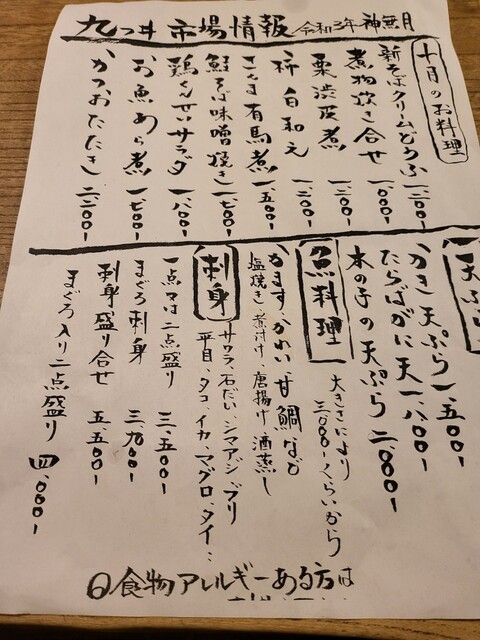 九つ井 市場情報 令和3年 神無月
十月のお料理
新そばクリームどうふ 一、二〇〇-
煮物炊き合せ 一、〇〇〇-
栗渋皮煮 一、二〇〇-
柿白和え 一、二〇〇-
さんま有馬煮 一、五〇〇-
鮭そば味噌焼き 一、七〇〇-
鶏くんせいサラダ 一、八〇〇-
お魚あら煮 一、七〇〇-
かつおたたき 二、二〇〇-
天ぷら
かき天ぷら 一、五〇〇-
たらばがに天 一、八〇〇-
木の子の天ぷら 二、〇〇〇-
魚料理
大きさにより
三、〇〇〇-くらいから
かます、かれい、甘鯛など
塩焼き、煮付け、唐揚げ、酒蒸し
刺身
サワラ、石だい、シマアジ、ブリ
平目、タコ、イカ、マグロ、タイ…
一点又は二点盛り 三、五〇〇-
まぐろ刺身 三、九〇〇-
刺身盛り合せ 五、五〇〇-
まぐろ入り二点盛り 四、〇〇〇-
◎食物アレルギーある方は